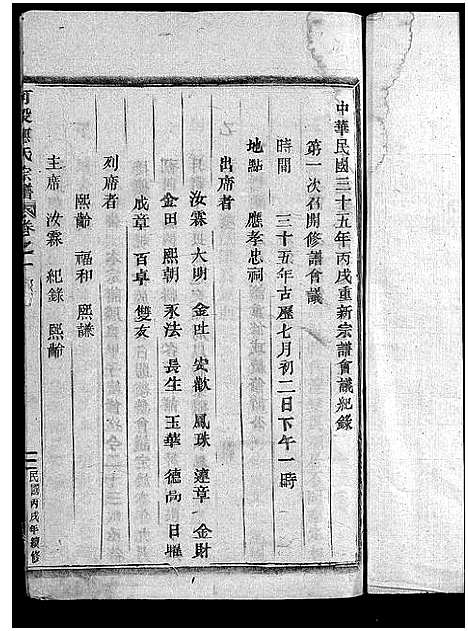 中華民國三十五年丙戌重新宗譜會議紀錄
第一次召開修譜會議
時間 三十五年古歷七月初二日下午一時
地點 應孝忠祠
出席者
汝霖 大明 金 安歡 鳳珠 達章 金財
金田 熙朝 永法 長生 玉華 德尚 日
成章 百卓 雙友
列席者
熙齡 福和 熙謙
主席 汝霖 紀錄 熙齡
氏宗譜 卷之一
民國丙戌年續修